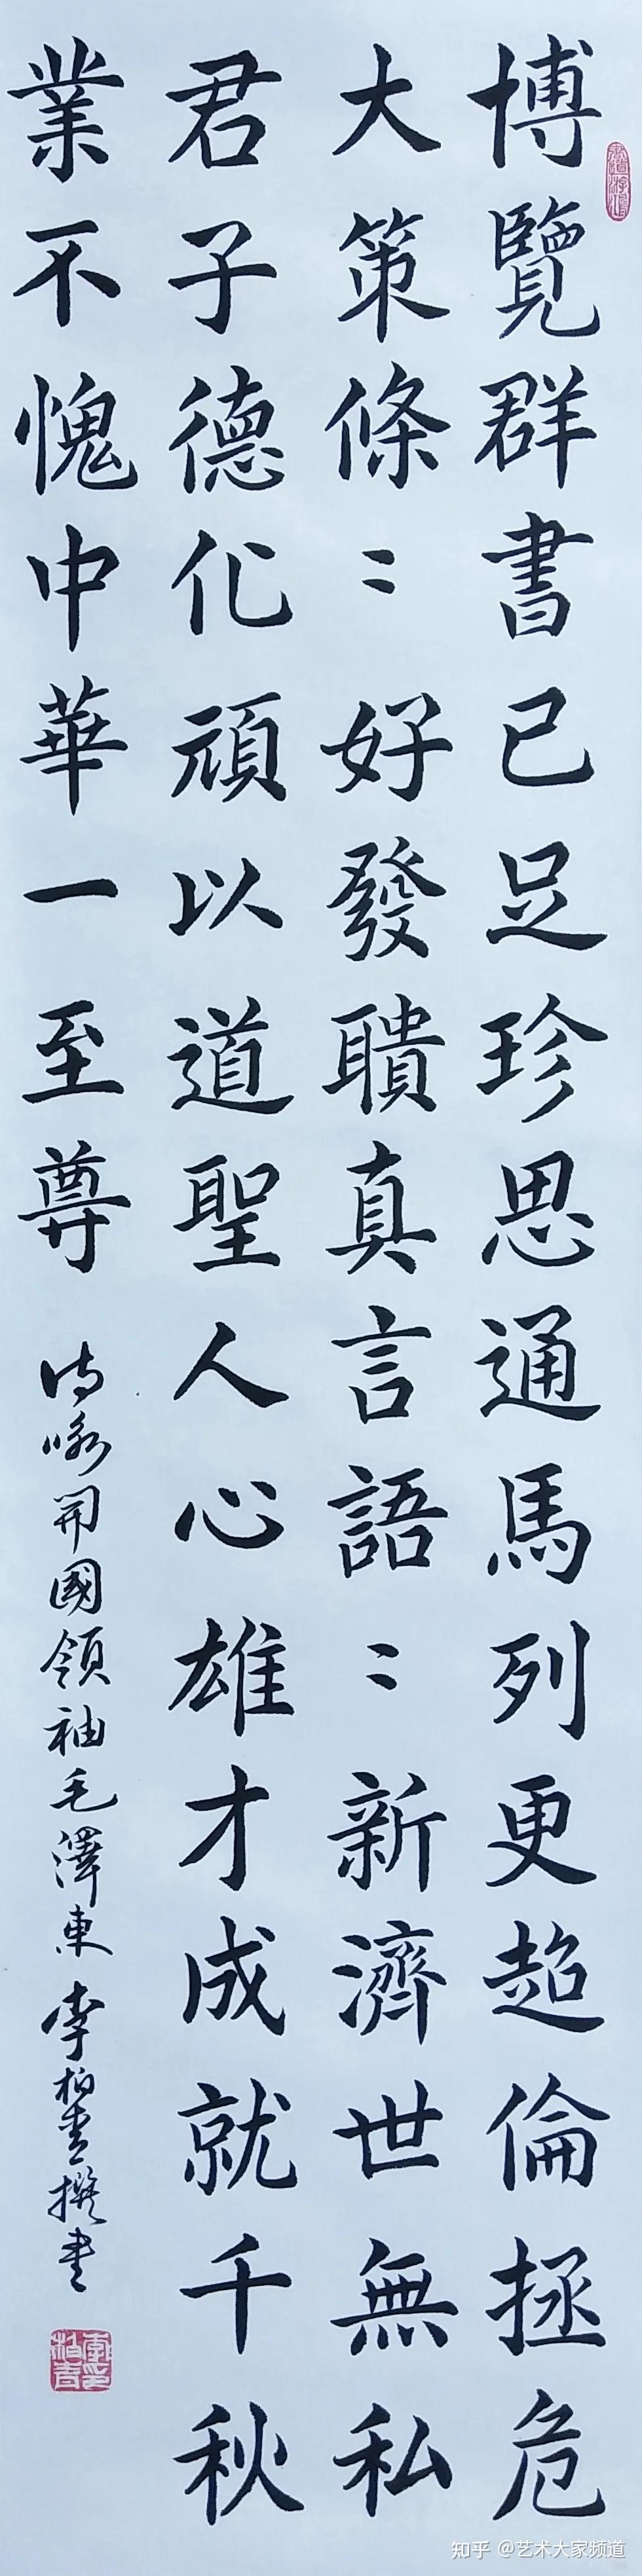 博覽群書已足珍思通馬列更超倫拯危
大策條〻好發聵真言語〻新濟世無私
君子德化頑以道聖人心雄才成就千秋
業不愧中華一至尊
詩咏開國領袖毛澤東 李柏青撰書
知乎 @艺术大家频道